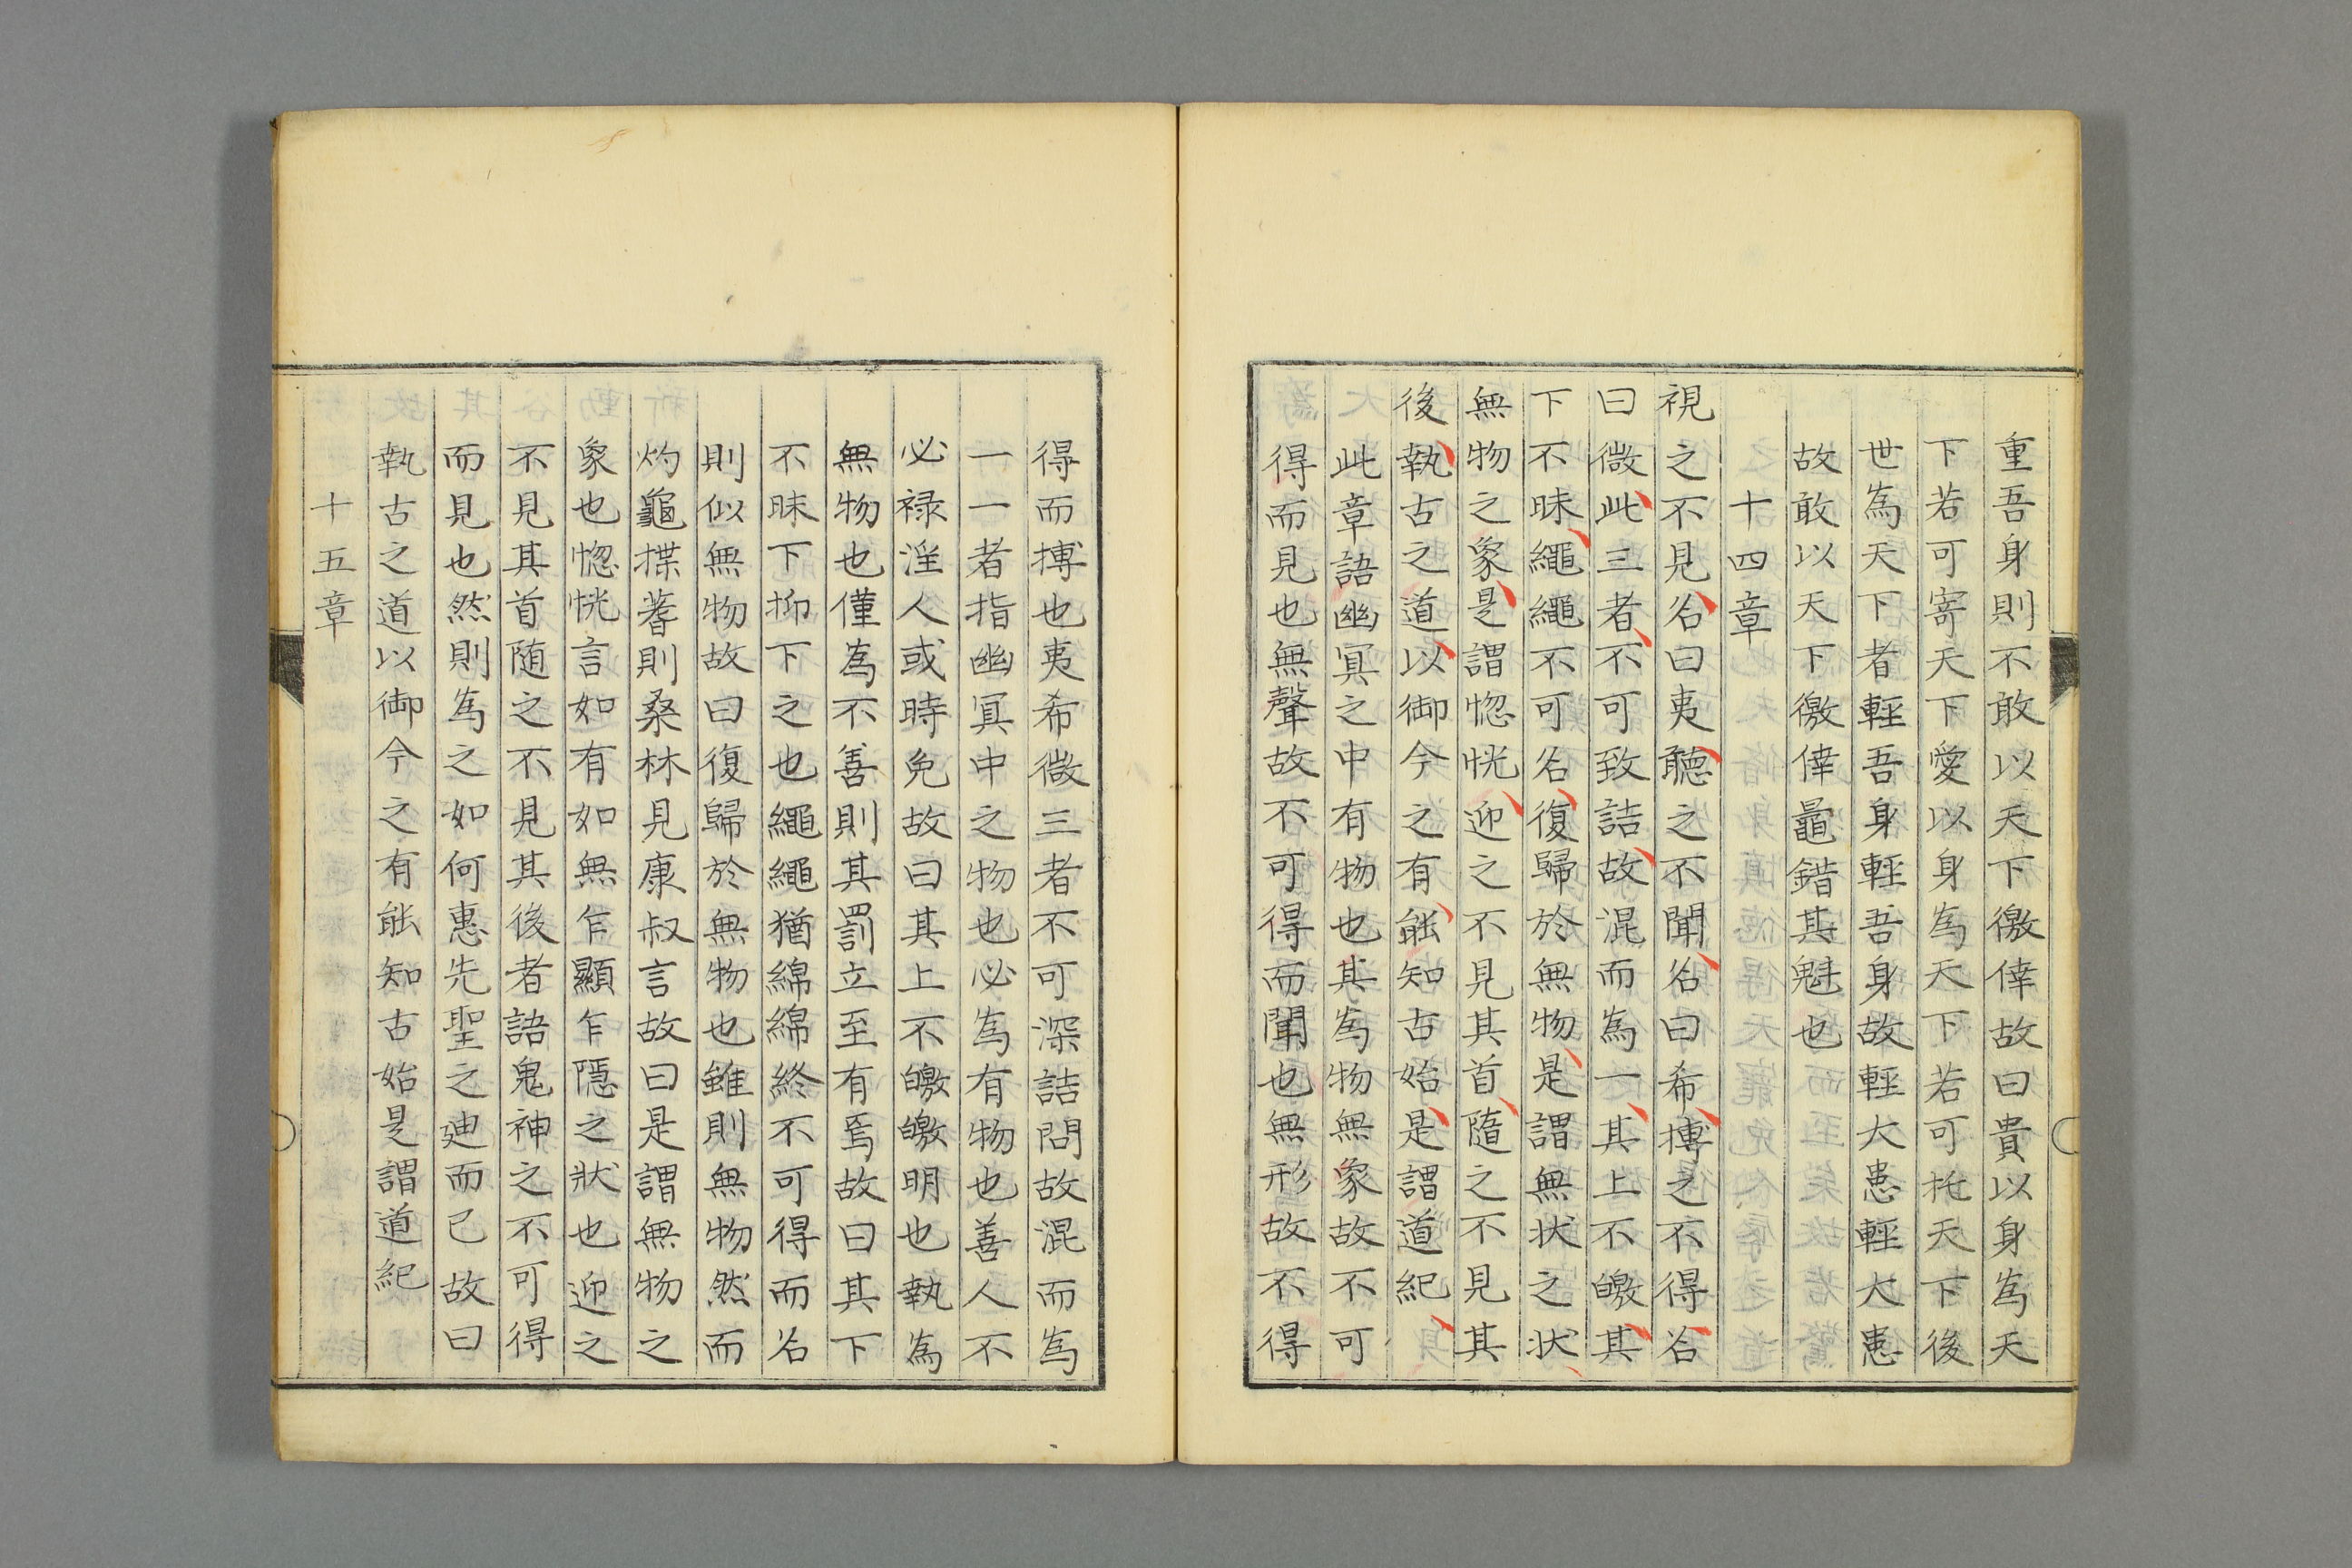 重吾身則不敢以天下徼倖故曰貴以身為天
下若可寄天下愛以身為天下若可托天下後
世為天下者輕吾身輕吾身故輕大患輕大患
故敢以天下徼倖鼂錯其魁也
十四章
視之不見名曰夷聽之不聞名曰希搏之不得名
曰微此三者不可致詰故混而為一其上不皦其
下不昧繩繩不可名復歸於無物是謂無状之状
無物之象是謂惚恍迎之不見其首隨之不見其
後執古之道以御今之有能知古始是謂道紀
此章語幽冥之中有物也其為物無象故不可
得而見也無聲故不可得而聞也無形故不得
得而搏也夷希微三者不可深詰問故混而為
一一者指幽冥中之物也必為有物也善人不
必禄淫人或時免故曰其上不皦皦明也執為
無物也僅為不善則其罰立至有焉故曰其下
不昧下抑下之也繩繩猶綿綿終不可得而名
則似無物故曰復歸於無物也雖則無物然而
灼龜揲蓍則桑林見康叔言故曰是謂無物之
象也惚恍言如有如無乍顯乍隱之狀也迎之
不見其首随之不見其後者語鬼神之不可得
而見也然則為之如何惠先聖之迪而已故曰
執古之道以御今之有能知古始是謂道紀
十五章